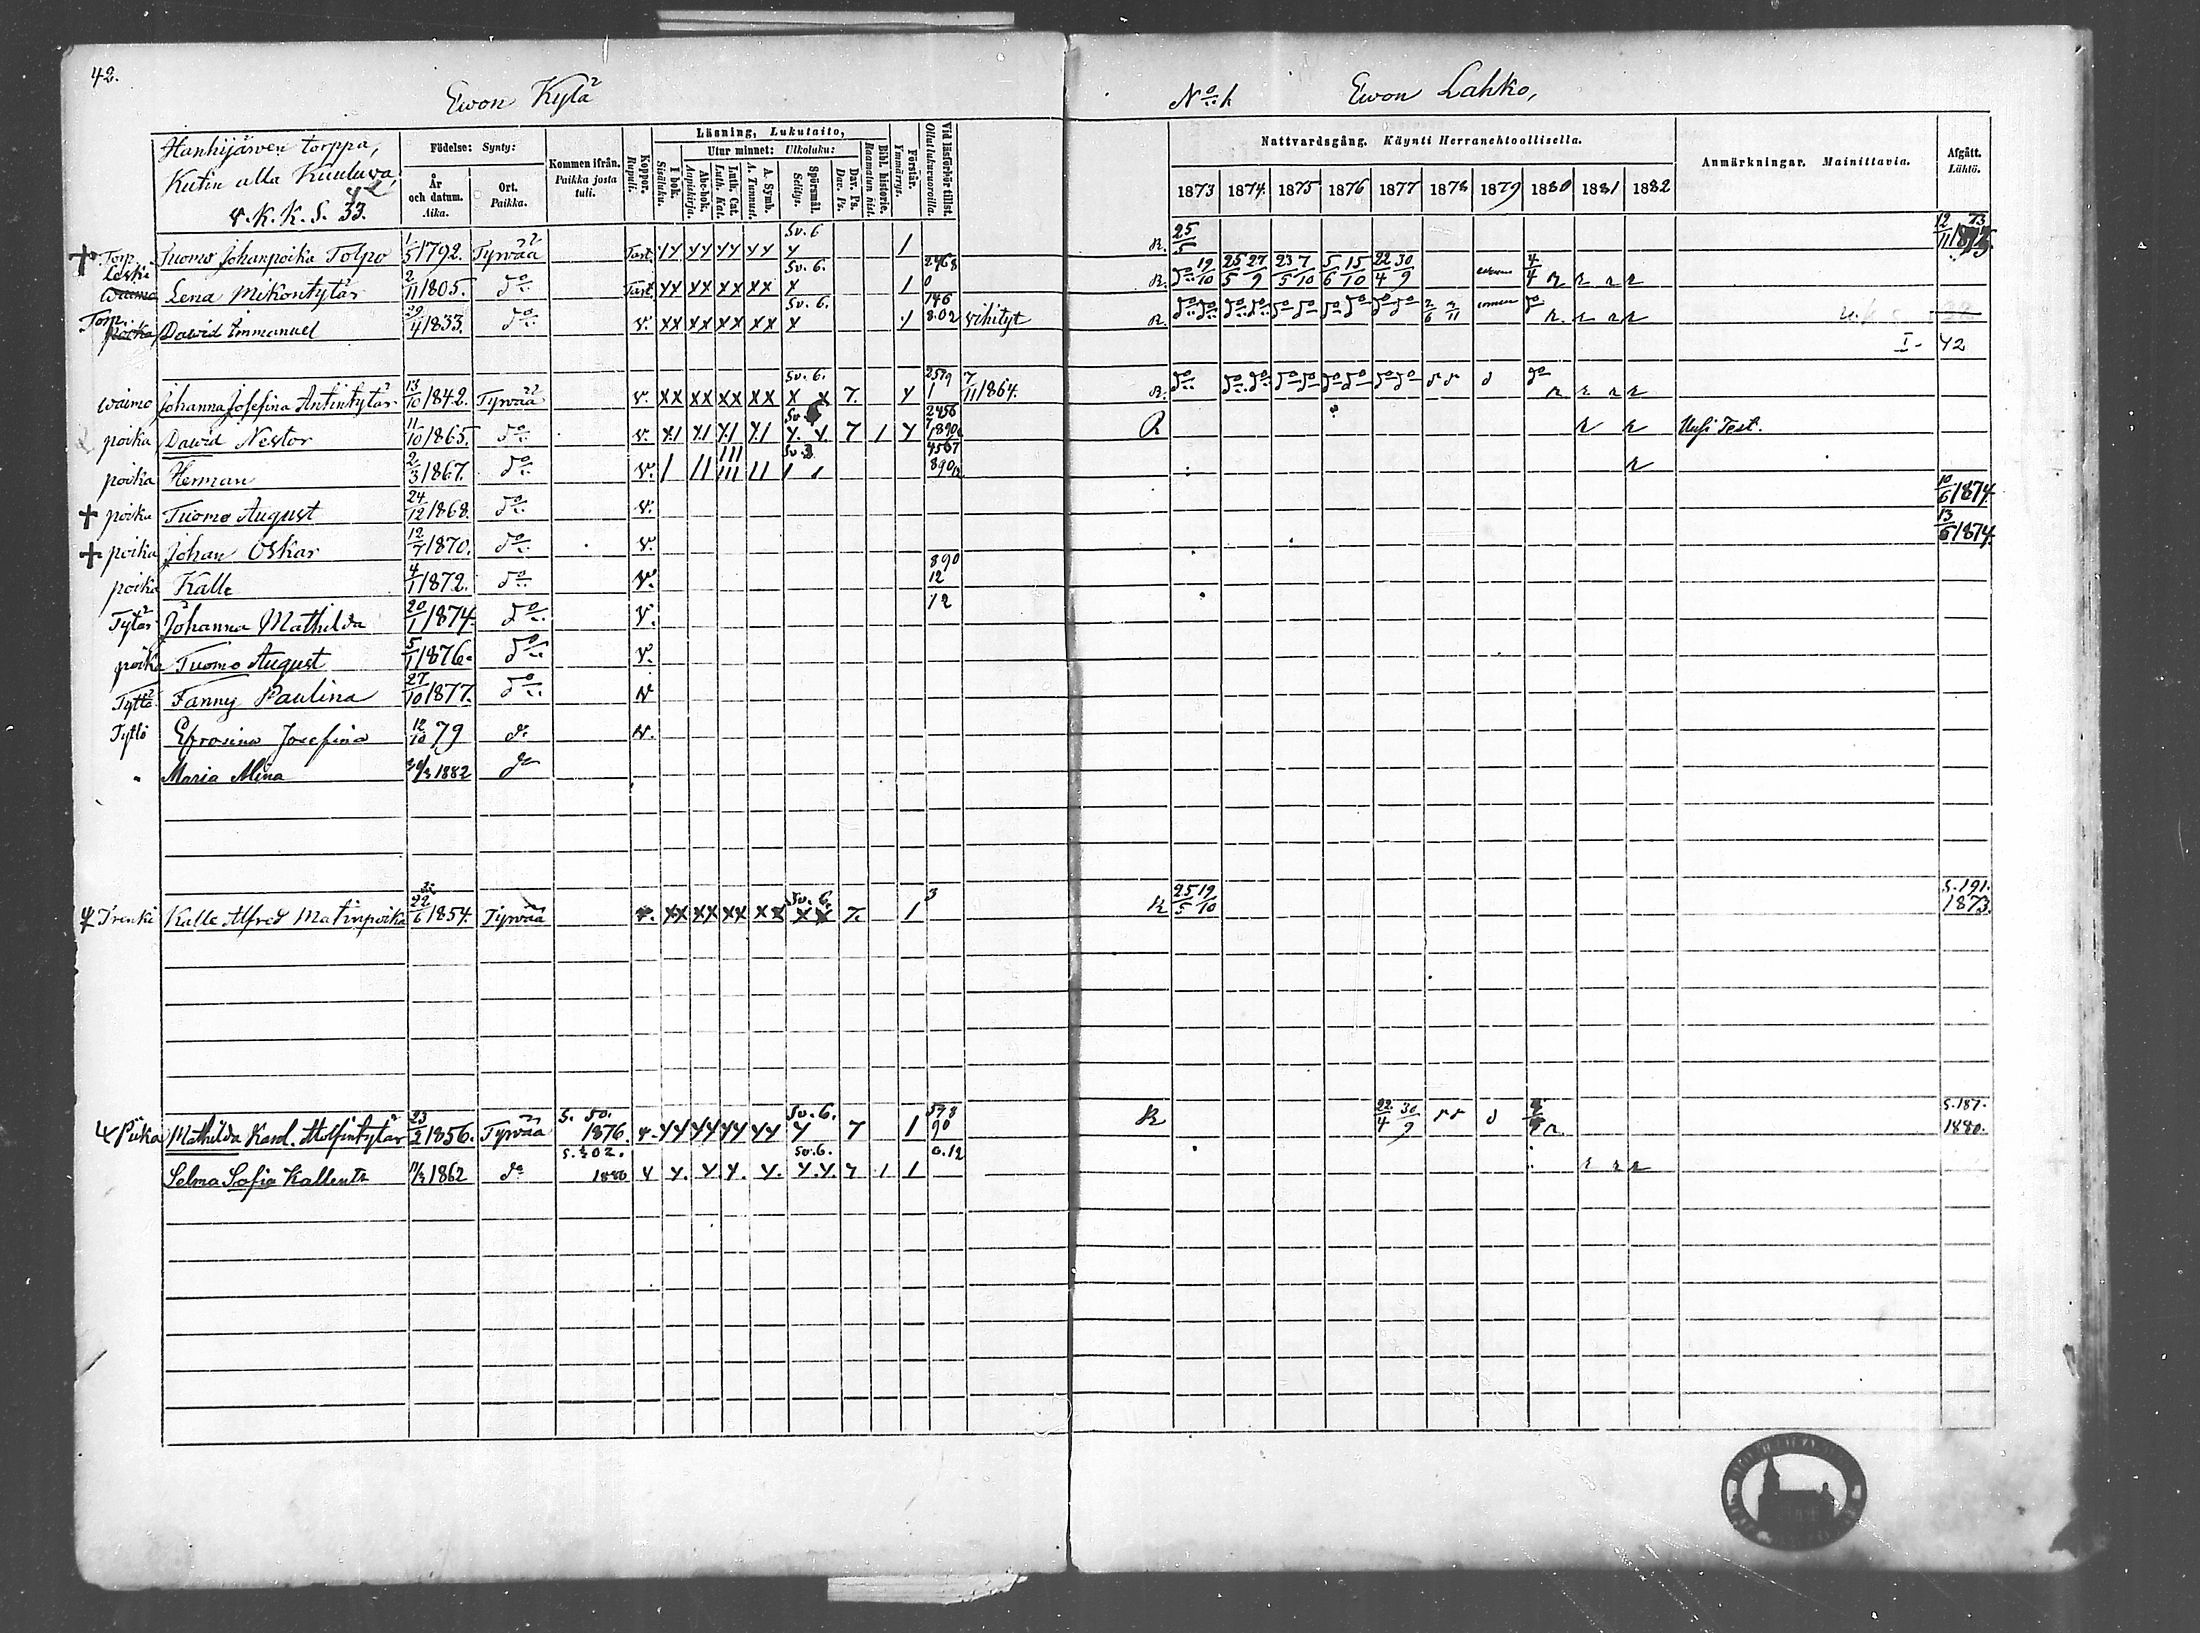 42.
Ewon Kylä
No 1.
Ewon Lahko,
Hanhijärwen torppa,
Kutin alla Kuuluwa,
42
v. K. K. S. 33.
Födelse: Synty:
År och datum. Aika.
Ort. Paikka.
Kommen ifrån. Paikka josta tuli.
Koppor. Rupuli.
Läsning, Lukutaito,
I bok. Sisäluku.
Utur minnet: Ulkoluku:
Abc-bok. Aapiskirja.
Luth. Cat. Luth. Kat.
A. Symb. A. Tunnust.
Spörsmål. Selitys.
Dav. Ps. Dav. Ps.
Bibl. historie. Raamatun hist.
Förstår. Ymmärrys.
Vid läsförhör tillst. Ollut lukuvuoroilla.
Nattvardsgång. Käynti Herranehtoollisella.
1873 1874 1875 1876 1877 1878 1879 1880 1881 1882
Anmärkningar. Mainittavia.
Afgått. Lähtö.
+ Torp. Tuomo Johanpoika Tolpo 1/5 1792. Tyrvää Tart. Sv. 6 R. 25/5 12/11 73
Leski waimo Lena Mikontytär 2/11 1805. do Tart. xx xx xx xx x Sv. 6. 1 2468 0 R. do 19/10 25/5 27/9 23/5 7/10 5/6 15/10 22/4 30/9 4/4 R r r r
Torp. poika Dawid Immanuel 29/4 1833. do v. xx xx xx xx x Sv. 6. 146 802 vihityt R. do do do do do do do do do do do r. r r r
I- 42
waimo Johanna Josefina Antintytär 13/10 1842. Tyrvää v. xx xx xx xx x x Sv. 6. 7. 2579 1 7/11 1864. R. do do do do do do do do do do r r r r
poika Dawid Nestor 11/10 1865. do v. Sv. 7 1 2456 R r r Uusi Test.
poika Herman 2/3 1867. do v. Sv. 3 4567 890 r
+ poika Tuomo August 24/12 1868. do v. 10/6 1874.
+ poika Johan Oskar 12/7 1870. do v. 13/6 1874.
poika Kalle 4/1 1872. do v. 890 12
Tytär Johanna Mathilda 20/1 1874. do v. 12
poika Tuomo August 5/1 1876. do v.
Tyttö Fanny Paulina 27/10 1877. do v
Tyttö Efrosina Josefina 12/10 79 do v.
" Maria Alina 1882 do
Trenki Kalle Alfred Matinpoika 22/6 1854. Tyrvää v. xx xx xx xx xx Sv. 6. 7. 1 3 R 25/5 19/10 S. 191. 1873.
Piika Mathilda Karol. Adolfintytär 23/2 1856. Tyrvää S. 50. 1876. v. Sv. 6. 7 1 578 90 R 22/4 30/9 S. 187. 1880.
Selma Sofia Kallent. 1862 do S. 302. 1880 Sv. 6. 7 1 1 0.12 r r r